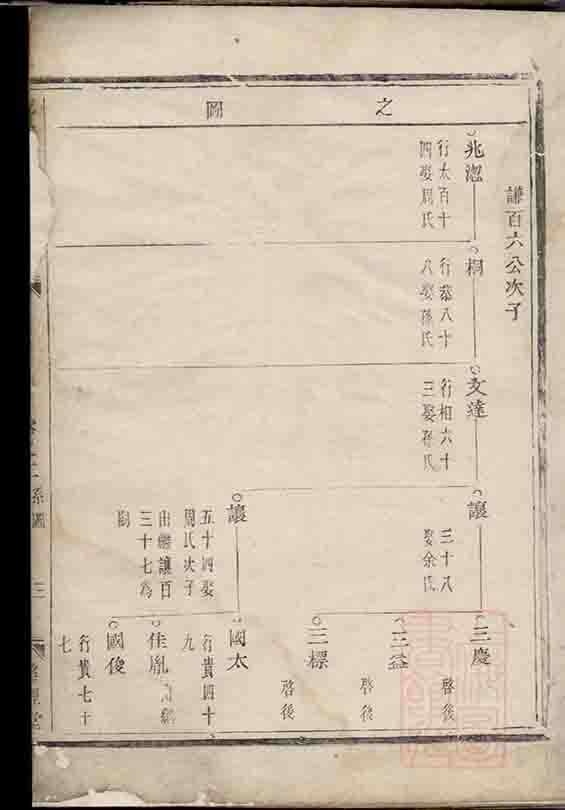 之圖
謙百六公次子
兆
行太百十
四娶周氏
桐
行恭八十
八娶孫氏
文達
行相六十
三娶孫氏
讓
三十八
娶余氏
讓
五十四娶
周氏次子
出繼讓百
三十七為
嗣
三慶
啓後
三益
啓後
三標
啓後
國太
行貴四十
九
佳胤
國俊
行貴七十
七
系圖
三